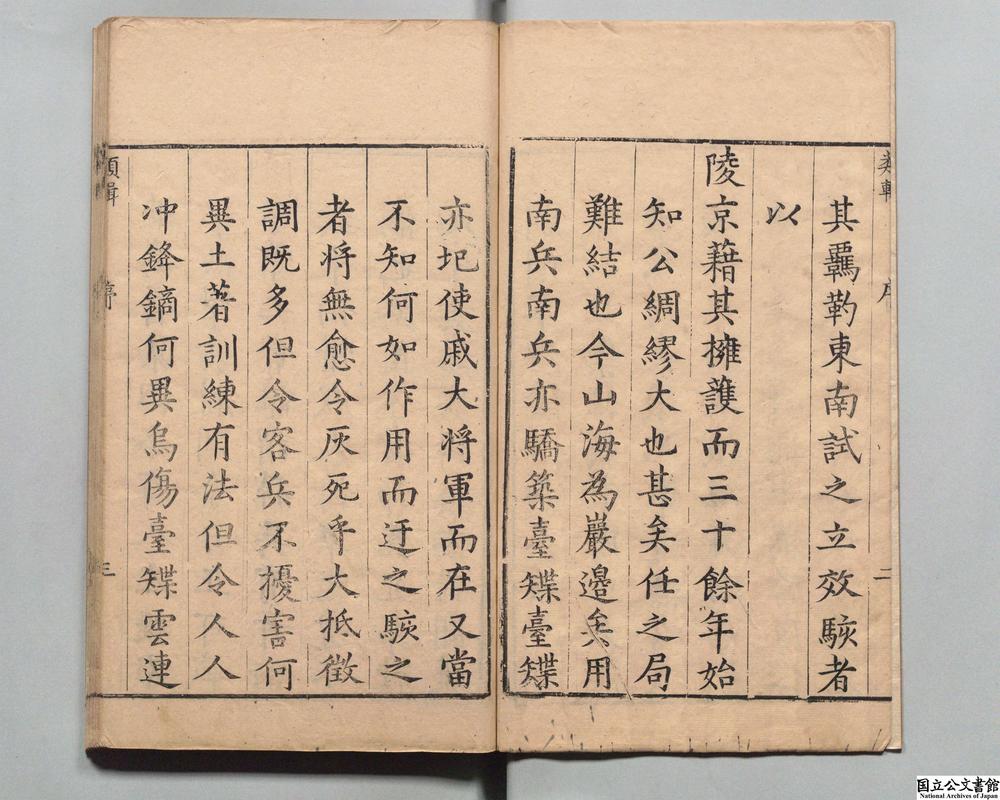 類輯 序 二
其羈靮東南試之立效駭者
以
陵京藉其擁護而三十餘年始
知公綢繆大也甚矣任之局
難結也今山海為巖邊矣用
南兵南兵亦驕築臺堞臺堞
亦圮使戚大将軍而在又當
不知何如作用而迂之駭之
者将無愈令灰死乎大抵徵
調既多但令客兵不擾害何
異土著訓練有法但令人人
冲鋒鏑何異烏傷臺堞雲連
類輯 序 三
国立公文書館
National Archives of Japan